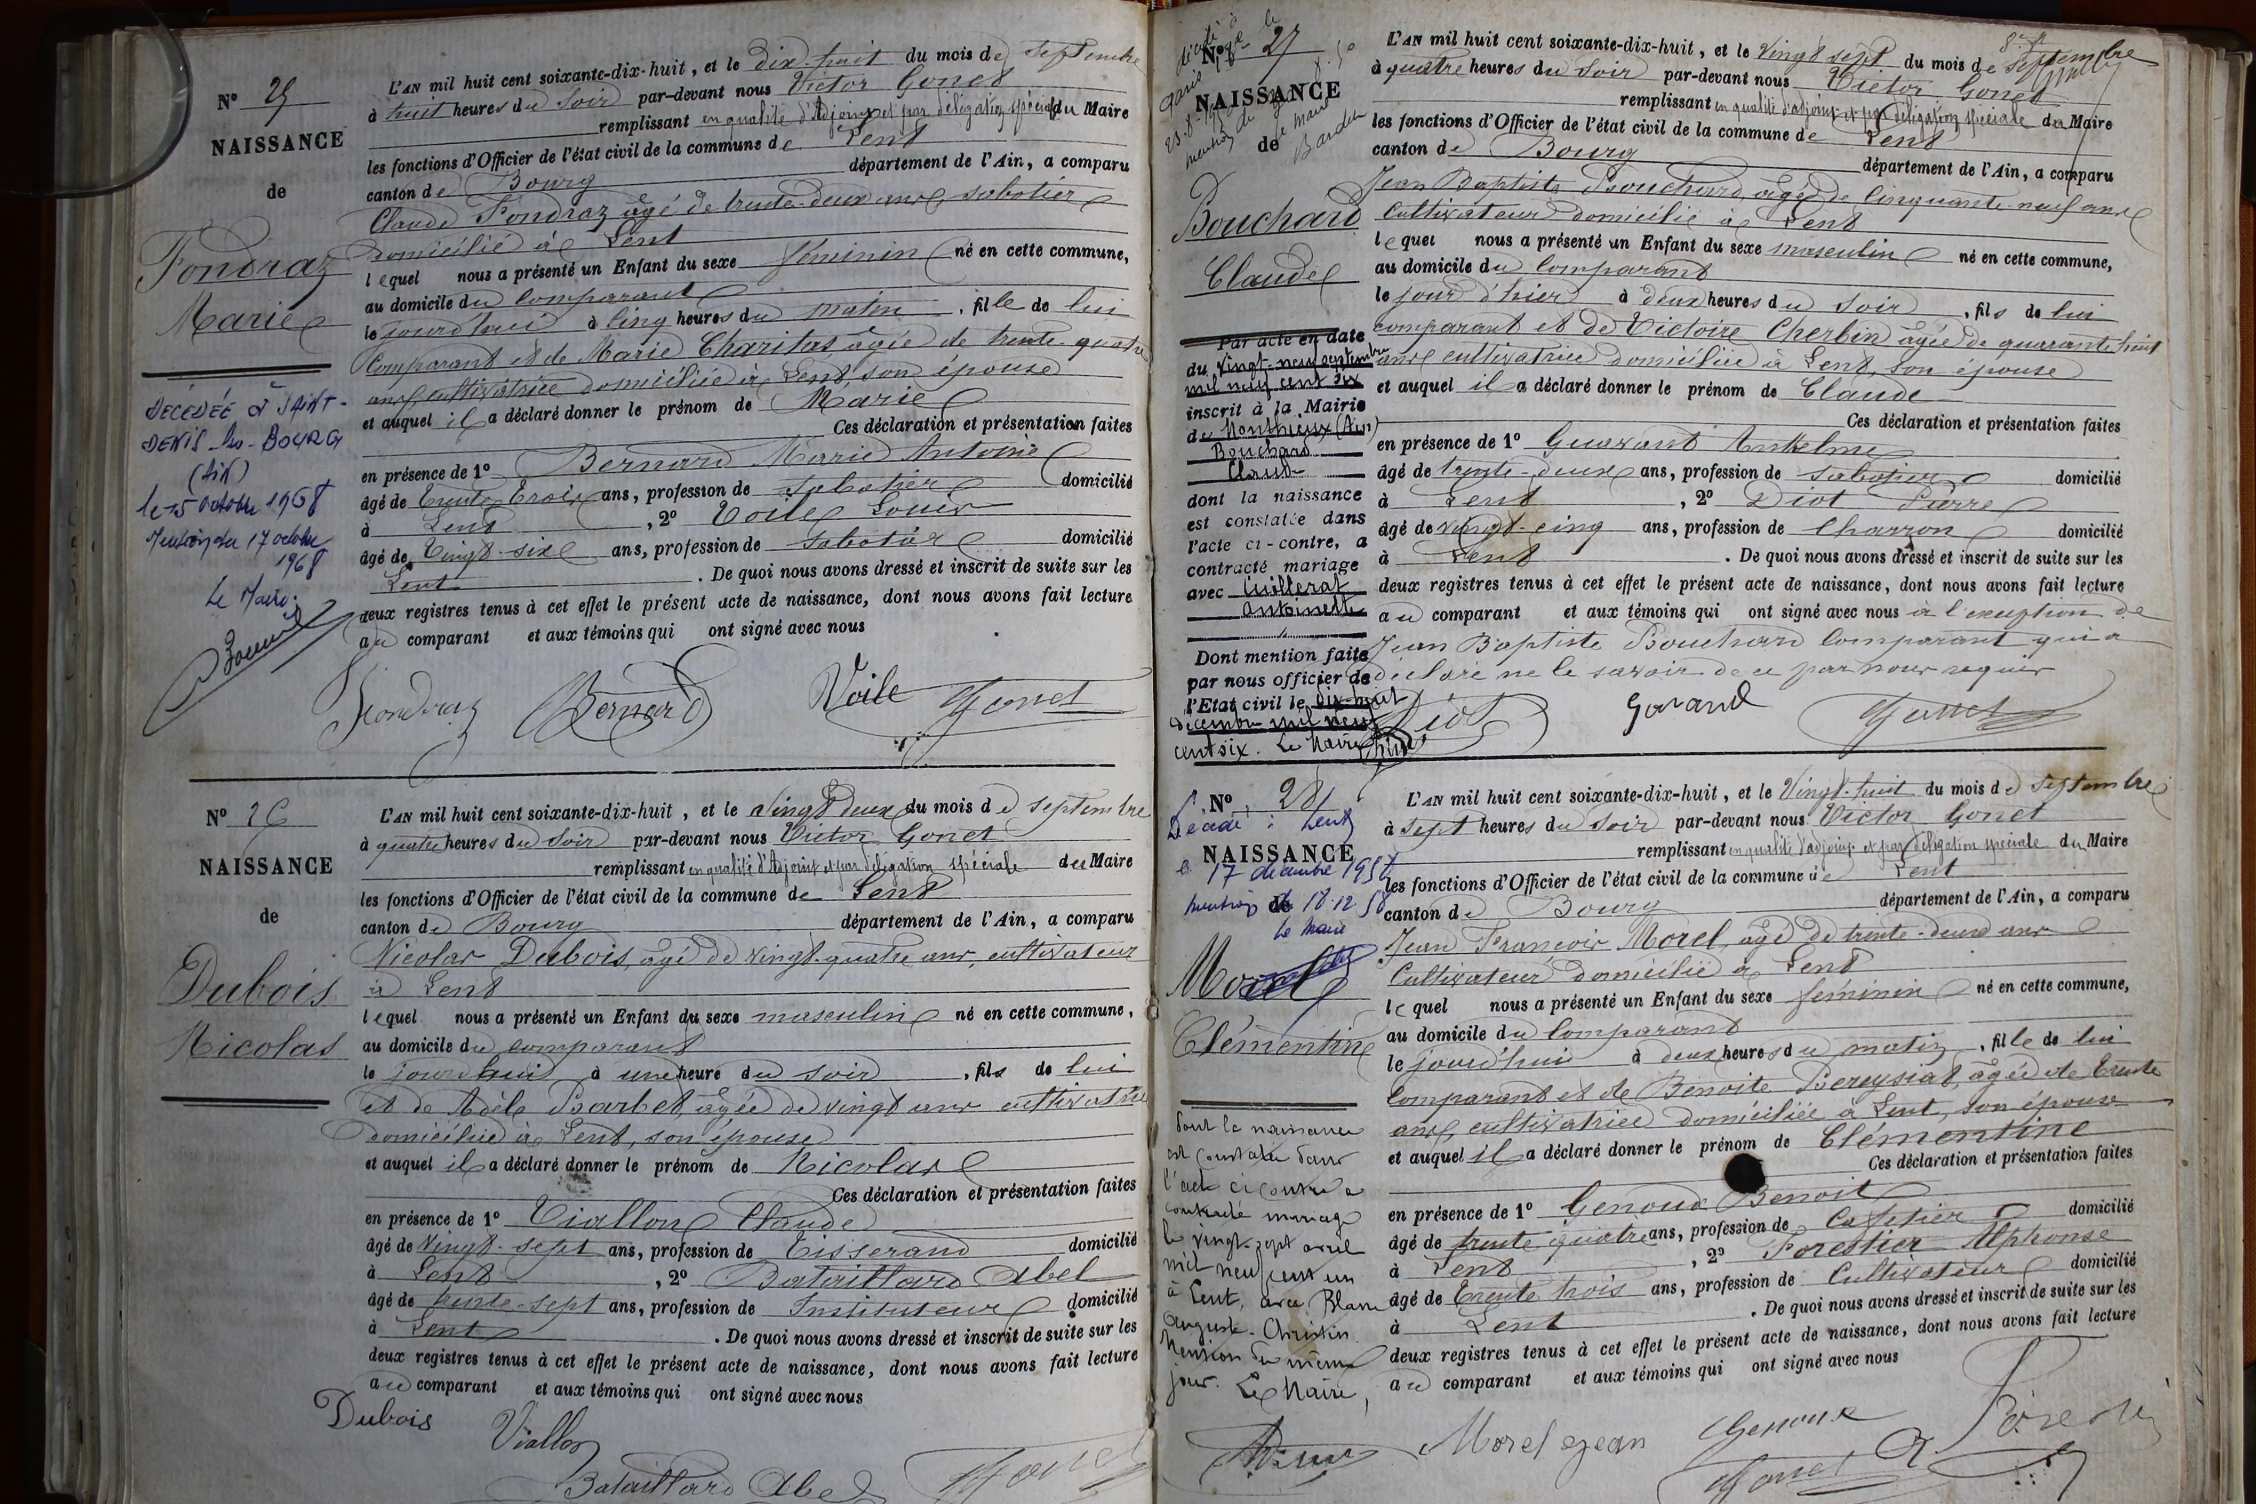 N° 25
NAISSANCE
de
Fondraz
Marie
DÉCÉDÉE à SAINT-
DENIS-les-BOURG
(AIN)
le 15 octobre 1968
Mention du 17 octobre
1968
Le Maire.
L'AN mil huit cent soixante-dix-huit, et le dix-huit du mois de septembre
à huit heures du soir par-devant nous Victor Gonet
remplissant en qualité d'Adjoint et par délégation spéciale du Maire
les fonctions d'Officier de l'état civil de la commune de Lent
canton de Bourg département de l'Ain, a comparu
Claude Fondraz âgé de trente-deux ans, sabotier
domicilié à Lent
lequel nous a présenté un Enfant du sexe féminin né en cette commune,
au domicile du comparant
le jourd'hui à cinq heures du matin, fille de lui
comparant et de Marie Charitas âgée de trente-quatre
ans, cultivatrice domiciliée à Lent, son épouse
et auquel il a déclaré donner le prénom de Marie
Ces déclaration et présentation faites
en présence de 1° Bernard Marie Antoine
âgé de trente-trois ans, profession de sabotier domicilié
à Lent, 2° Voile Louis
âgé de vingt-six ans, profession de sabotier domicilié
Lent. De quoi nous avons dressé et inscrit de suite sur les
deux registres tenus à cet effet le présent acte de naissance, dont nous avons fait lecture
au comparant et aux témoins qui ont signé avec nous
Fondraz Bernard Voile Gonet
N° 26
NAISSANCE
de
Dubois
Nicolas
L'AN mil huit cent soixante-dix-huit, et le vingt-deux du mois de septembre
à quatre heures du soir par-devant nous Victor Gonet
remplissant en qualité d'Adjoint et par délégation spéciale du Maire
les fonctions d'Officier de l'état civil de la commune de Lent
canton de Bourg département de l'Ain, a comparu
Nicolas Dubois, âgé de vingt-quatre ans, cultivateur
à Lent
lequel nous a présenté un Enfant du sexe masculin né en cette commune,
au domicile du comparant
le jourd'hui à une heure du soir, fils de lui
et de Adèle Barbet, âgée de vingt ans cultivatrice
domiciliée à Lent, son épouse
et auquel il a déclaré donner le prénom de Nicolas
Ces déclaration et présentation faites
en présence de 1° Viallon Claude
âgé de vingt-sept ans, profession de Tisserand domicilié
à Lent, 2° Bataillard Abel
âgé de trente-sept ans, profession de Instituteur domicilié
à Lent. De quoi nous avons dressé et inscrit de suite sur les
deux registres tenus à cet effet le présent acte de naissance, dont nous avons fait lecture
au comparant et aux témoins qui ont signé avec nous
Dubois Viallon
Bataillard Abel Gonet
N° 27
NAISSANCE
de
Bouchard
Claude
Par acte en date
du vingt-neuf septembre
mil neuf cent six
inscrit à la Mairie
de Monthieux (Ain)
Bouchard
Claude
dont la naissance
est constatée dans
l'acte ci-contre, a
contracté mariage
avec Cuillerat
Antoinette
Dont mention faite
par nous officier de
l'Etat civil le dix-huit
décembre mil neuf
cent six. Le Maire
L'AN mil huit cent soixante-dix-huit, et le vingt sept du mois de septembre
à quatre heures du soir par-devant nous Victor Gonet
remplissant en qualité d'adjoint et par délégation spéciale du Maire
les fonctions d'Officier de l'état civil de la commune de Lent
canton de Bourg département de l'Ain, a comparu
Jean Baptiste Bouchard, âgé de cinquante-neuf ans
cultivateur domicilié à Lent
lequel nous a présenté un Enfant du sexe masculin né en cette commune,
au domicile du comparant
le jour d'hier à deux heures du soir, fils de lui
comparant et de Victoire Cherbin âgée de quarante-huit
ans cultivatrice domiciliée à Lent, son épouse
et auquel il a déclaré donner le prénom de Claude
Ces déclaration et présentation faites
en présence de 1° Guarant Anthelme
âgé de trente-deux ans, profession de sabotier domicilié
à Lent, 2° Diot Pierre
âgé de vingt-cinq ans, profession de charron domicilié
à Lent. De quoi nous avons dressé et inscrit de suite sur les
deux registres tenus à cet effet le présent acte de naissance, dont nous avons fait lecture
au comparant et aux témoins qui ont signé avec nous à l'exception de
Jean Baptiste Bouchard comparant qui a
déclaré ne le savoir de ce par nous requis
Diot Garand Gonet
N° 28
Décédé à Lent
NAISSANCE
le 17 décembre 1958
mention de 18-12-58
Le Maire
Morel
Clémentine
dont la naissance
est constatée dans
l'acte ci contre a
contracté mariage
le vingt-sept avril
mil neuf cent un
à Lent, avec Blanc
Auguste-Christin.
Mention du même
jour. Le Maire,
L'AN mil huit cent soixante-dix-huit, et le vingt-huit du mois de septembre
à sept heures du soir par-devant nous Victor Gonet
remplissant en qualité d'adjoint et par délégation spéciale du Maire
les fonctions d'Officier de l'état civil de la commune de Lent
canton de Bourg département de l'Ain, a comparu
Jean François Morel, âgé de trente-deux ans
cultivateur domicilié à Lent
lequel nous a présenté un Enfant du sexe féminin né en cette commune,
au domicile du comparant
le jourd'hui à deux heures du matin, fille de lui
comparant et de Benoite Bereysiat, âgée de trente
ans, cultivatrice domiciliée à Lent, son épouse
et auquel il a déclaré donner le prénom de Clémentine
Ces déclaration et présentation faites
en présence de 1° Genoud Benoit
âgé de trente quatre ans, profession de cafetier domicilié
à Lent, 2° Forestier Alphonse
âgé de trente trois ans, profession de cultivateur domicilié
à Lent. De quoi nous avons dressé et inscrit de suite sur les
deux registres tenus à cet effet le présent acte de naissance, dont nous avons fait lecture
au comparant et aux témoins qui ont signé avec nous
Morel jean Genoux
Gonet